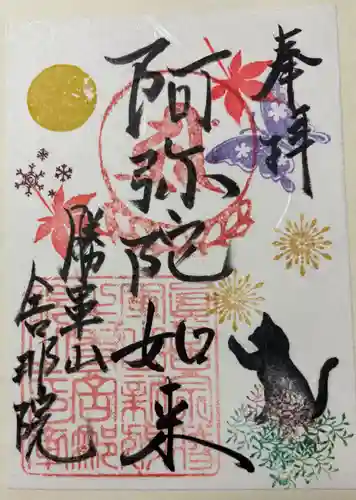 奉拝
阿弥陀如来
勝軍山
舎那院